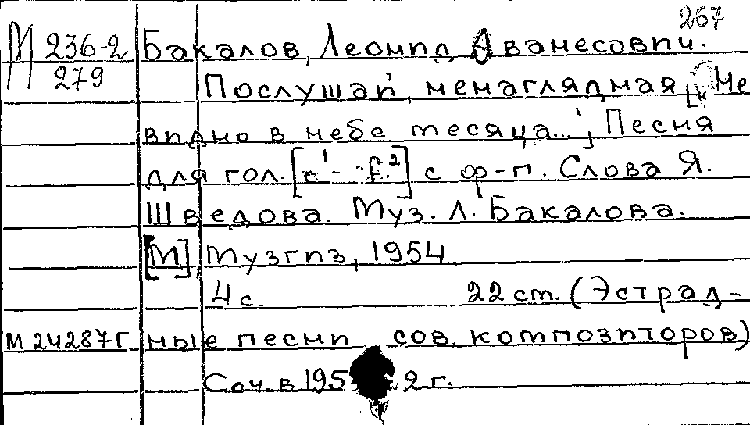 267
М 236-2
279
Бакалов, Леонид Аванесович.
Послушай, ненаглядная [„Не
видно в небе месяца...", Песня
для гол. [c¹ - f²] с ф-п. Слова Я.
Шведова. Муз. Л. Бакалова.
[М] Музгиз, 1954
4 с. 22 см. (Эстрад-
М 24287г ные песни сов. композиторов)
Соч. в 195 2 г.